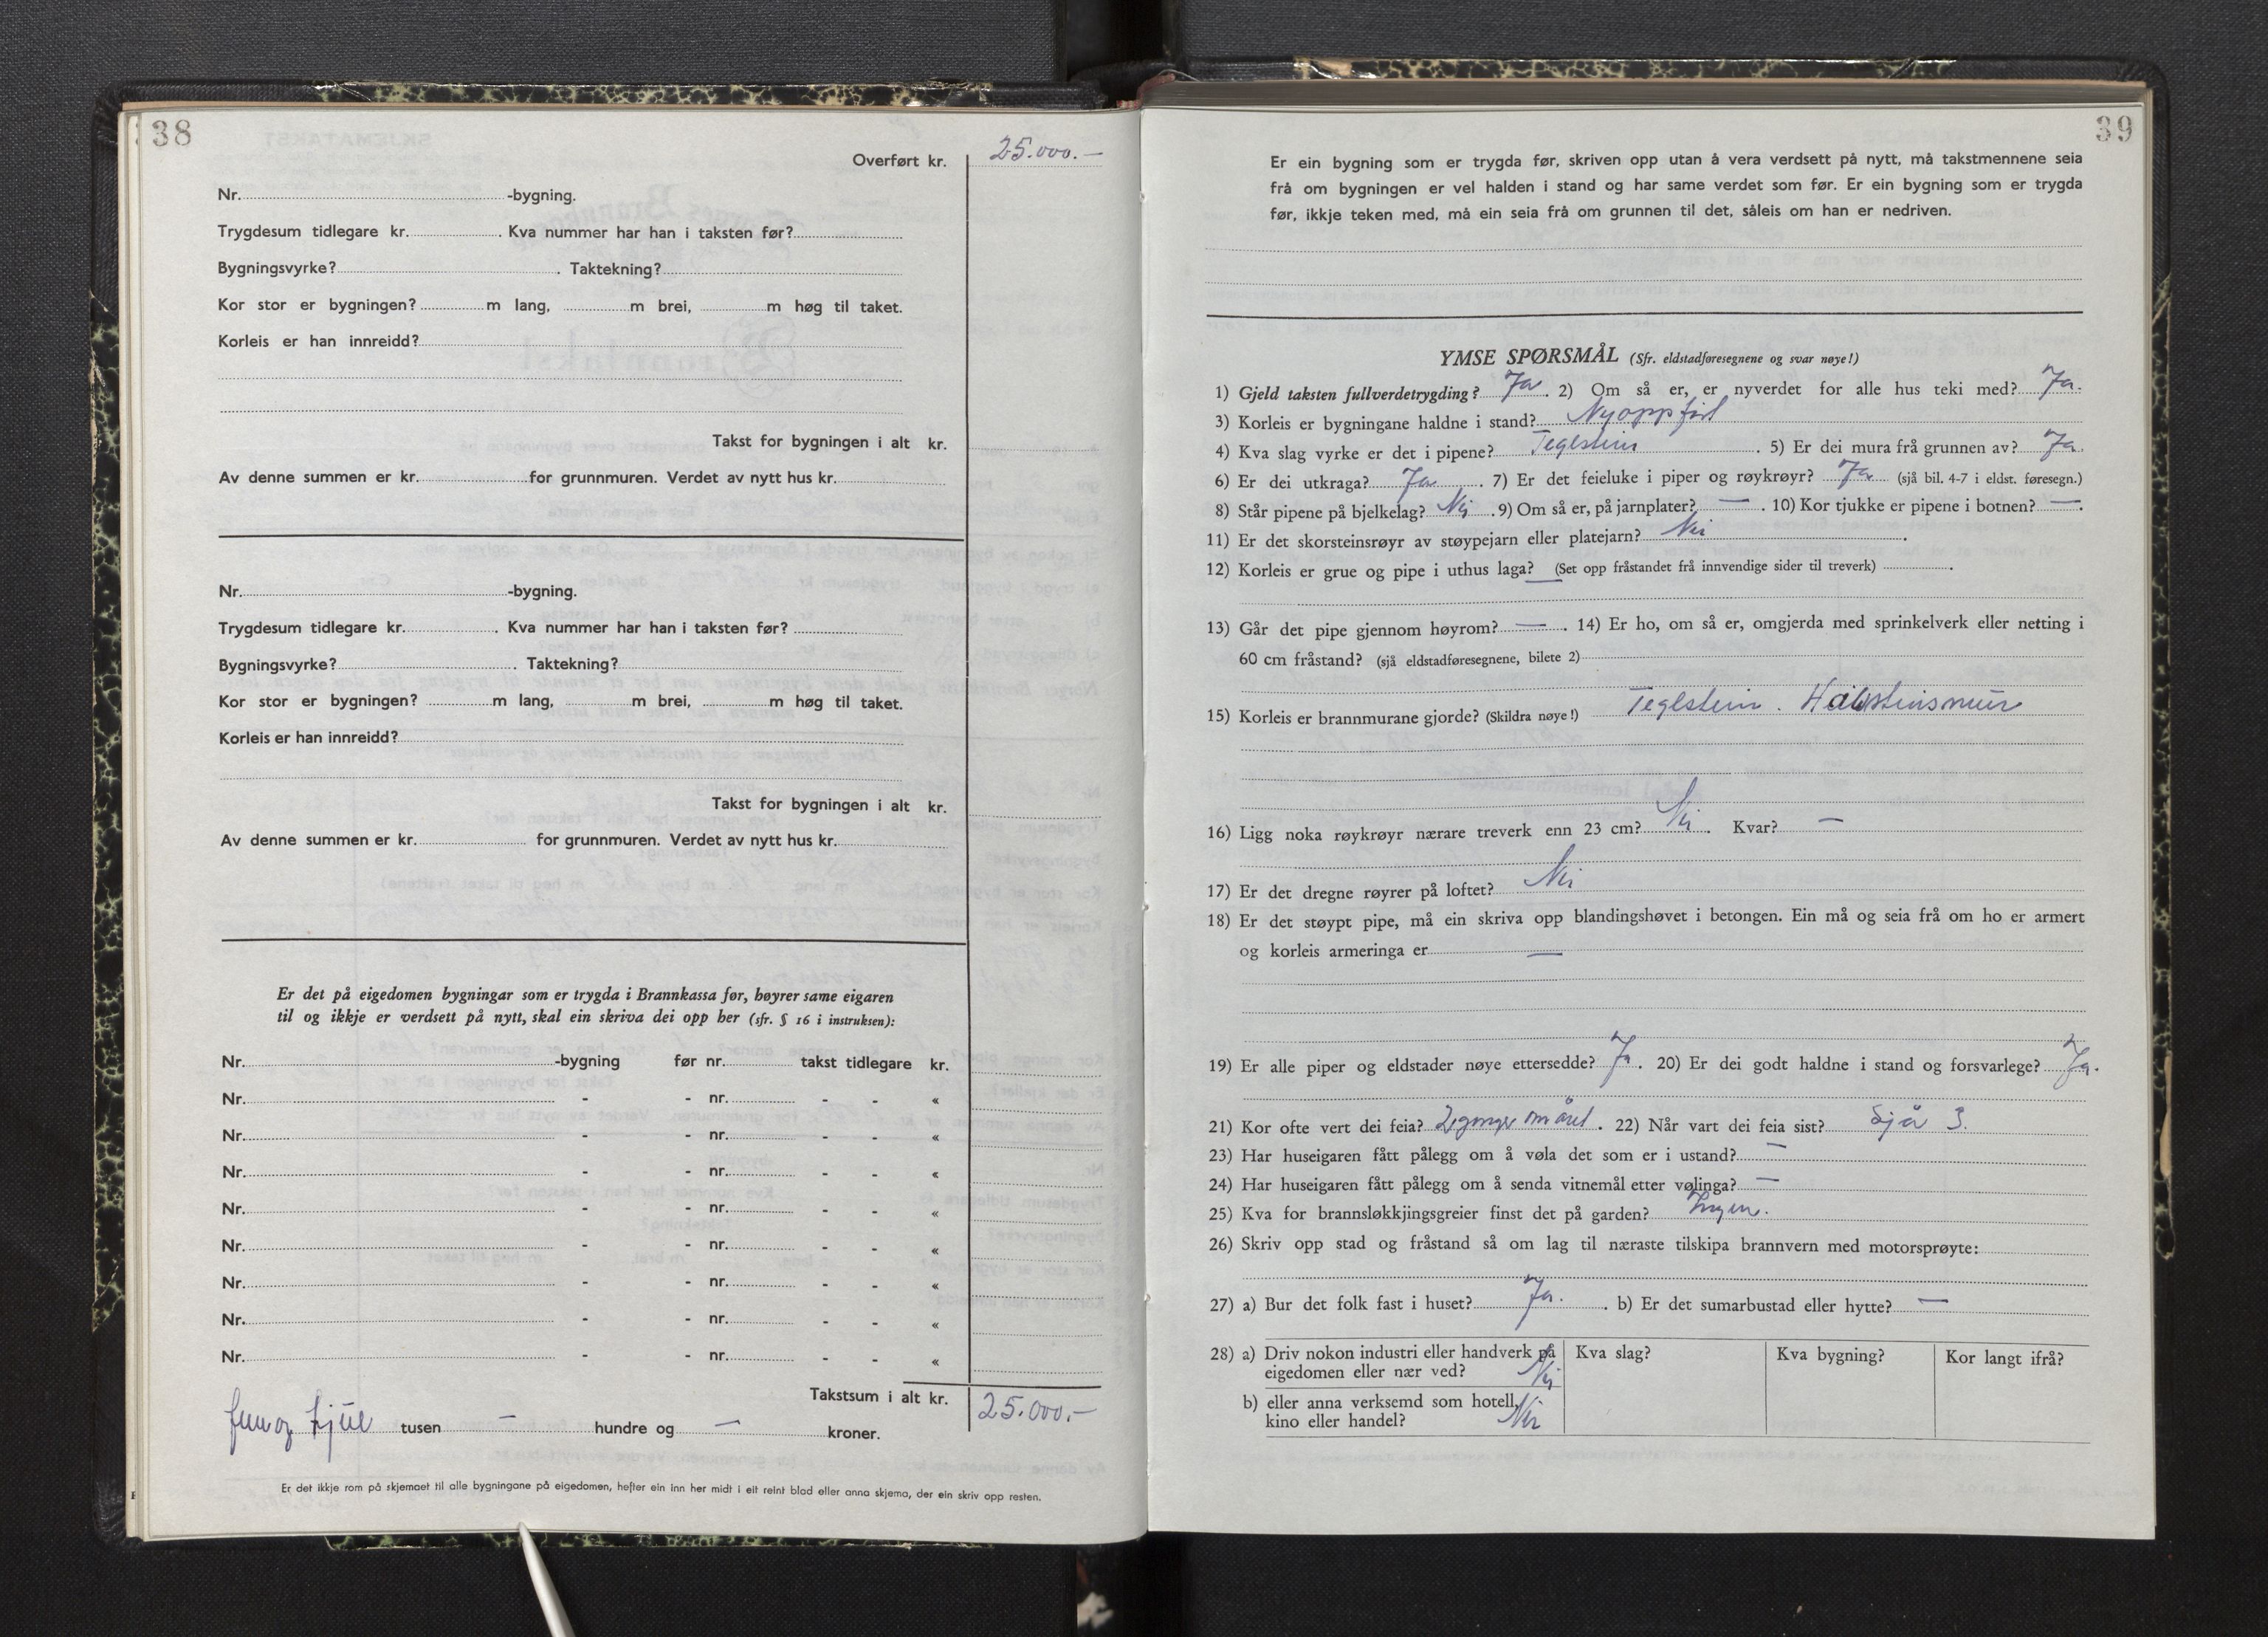 38
Overført kr. 25.000.—
Nr. -bygning.
Trygdesum tidlegare kr. . Kva nummer har han i taksten før?
Bygningsvyrke? . Taktekning?
Kor stor er bygningen? m lang, m brei, m høg til taket.
Korleis er han innreidd?
Takst for bygningen i alt kr.
Av denne summen er kr. for grunnmuren. Verdet av nytt hus kr.
Nr. -bygning.
Trygdesum tidlegare kr. . Kva nummer har han i taksten før?
Bygningsvyrke? . Taktekning?
Kor stor er bygningen? m lang, m brei, m høg til taket.
Korleis er han innreidd?
Takst for bygningen i alt kr.
Av denne summen er kr. for grunnmuren. Verdet av nytt hus kr.
Er det på eigedomen bygningar som er trygda i Brannkassa før, høyrer same eigaren
til og ikkje er verdsett på nytt, skal ein skriva dei opp her (sfr. § 16 i instruksen):
Nr. -bygning før nr. takst tidlegare kr.
Nr. - - nr. - - «
Nr. - - nr. - - «
Nr. - - nr. - - «
Nr. - - nr. - - «
Nr. - - nr. - - «
Nr. - - nr. - - «
Nr. - - nr. - - «
Nr. - - nr. - - «
Takstsum i alt kr. 25.000.—
fem og tjue tusen — hundre og — kroner.
Er det ikkje rom på skjemaet til alle bygningane på eigedomen, hefter ein inn her midt i eit reint blad eller anna skjema, der ein skriv opp resten.
39
Er ein bygning som er trygda før, skriven opp utan å vera verdsett på nytt, må takstmennene seia
frå om bygningen er vel halden i stand og har same verdet som før. Er ein bygning som er trygda
før, ikkje teken med, må ein seia frå om grunnen til det, såleis om han er nedriven.
YMSE SPØRSMÅL (Sfr. eldstadføresegnene og svar nøye!)
1) Gjeld taksten fullverdetrygding? Ja. 2) Om så er, er nyverdet for alle hus teki med? Ja.
3) Korleis er bygningane haldne i stand? Nyoppført
4) Kva slag vyrke er det i pipene? Teglstein . 5) Er dei mura frå grunnen av? Ja.
6) Er dei utkraga? Ja . 7) Er det feieluke i piper og røykrøyr? Ja (sjå bil. 4-7 i eldst. føresegn.)
8) Står pipene på bjelkelag? Nei . 9) Om så er, på jarnplater? — . 10) Kor tjukke er pipene i botnen? — .
11) Er det skorsteinsrøyr av støypejarn eller platejarn? Nei .
12) Korleis er grue og pipe i uthus laga? — (Set opp fråstandet frå innvendige sider til treverk) .
13) Går det pipe gjennom høyrom? — . 14) Er ho, om så er, omgjerda med sprinkelverk eller netting i
60 cm fråstand? (sjå eldstadføresegnene, bilete 2)
15) Korleis er brannmurane gjorde? (Skildra nøye!) Teglstein. Halvsteinsmur
16) Ligg noka røykrøyr nærare treverk enn 23 cm? Nei . Kvar? —
17) Er det dregne røyrer på loftet? Nei
18) Er det støypt pipe, må ein skriva opp blandingshøvet i betongen. Ein må og seia frå om ho er armert
og korleis armeringa er —
19) Er alle piper og eldstader nøye ettersedde? Ja . 20) Er dei godt haldne i stand og forsvarlege? Ja.
21) Kor ofte vert dei feia? 2 gonger om året . 22) Når vart dei feia sist? Sjå 3.
23) Har huseigaren fått pålegg om å vøla det som er i ustand? —
24) Har huseigaren fått pålegg om å senda vitnemål etter vølinga? —
25) Kva for brannsløkkjingsgreier finst det på garden? Ingen.
26) Skriv opp stad og fråstand så om lag til næraste tilskipa brannvern med motorsprøyte:
27) a) Bur det folk fast i huset? Ja. . b) Er det sumarbustad eller hytte? —
28) a) Driv nokon industri eller handverk på eigedomen eller nær ved? Nei Kva slag? Kva bygning? Kor langt ifrå?
b) eller anna verksemd som hotell, kino eller handel? Nei